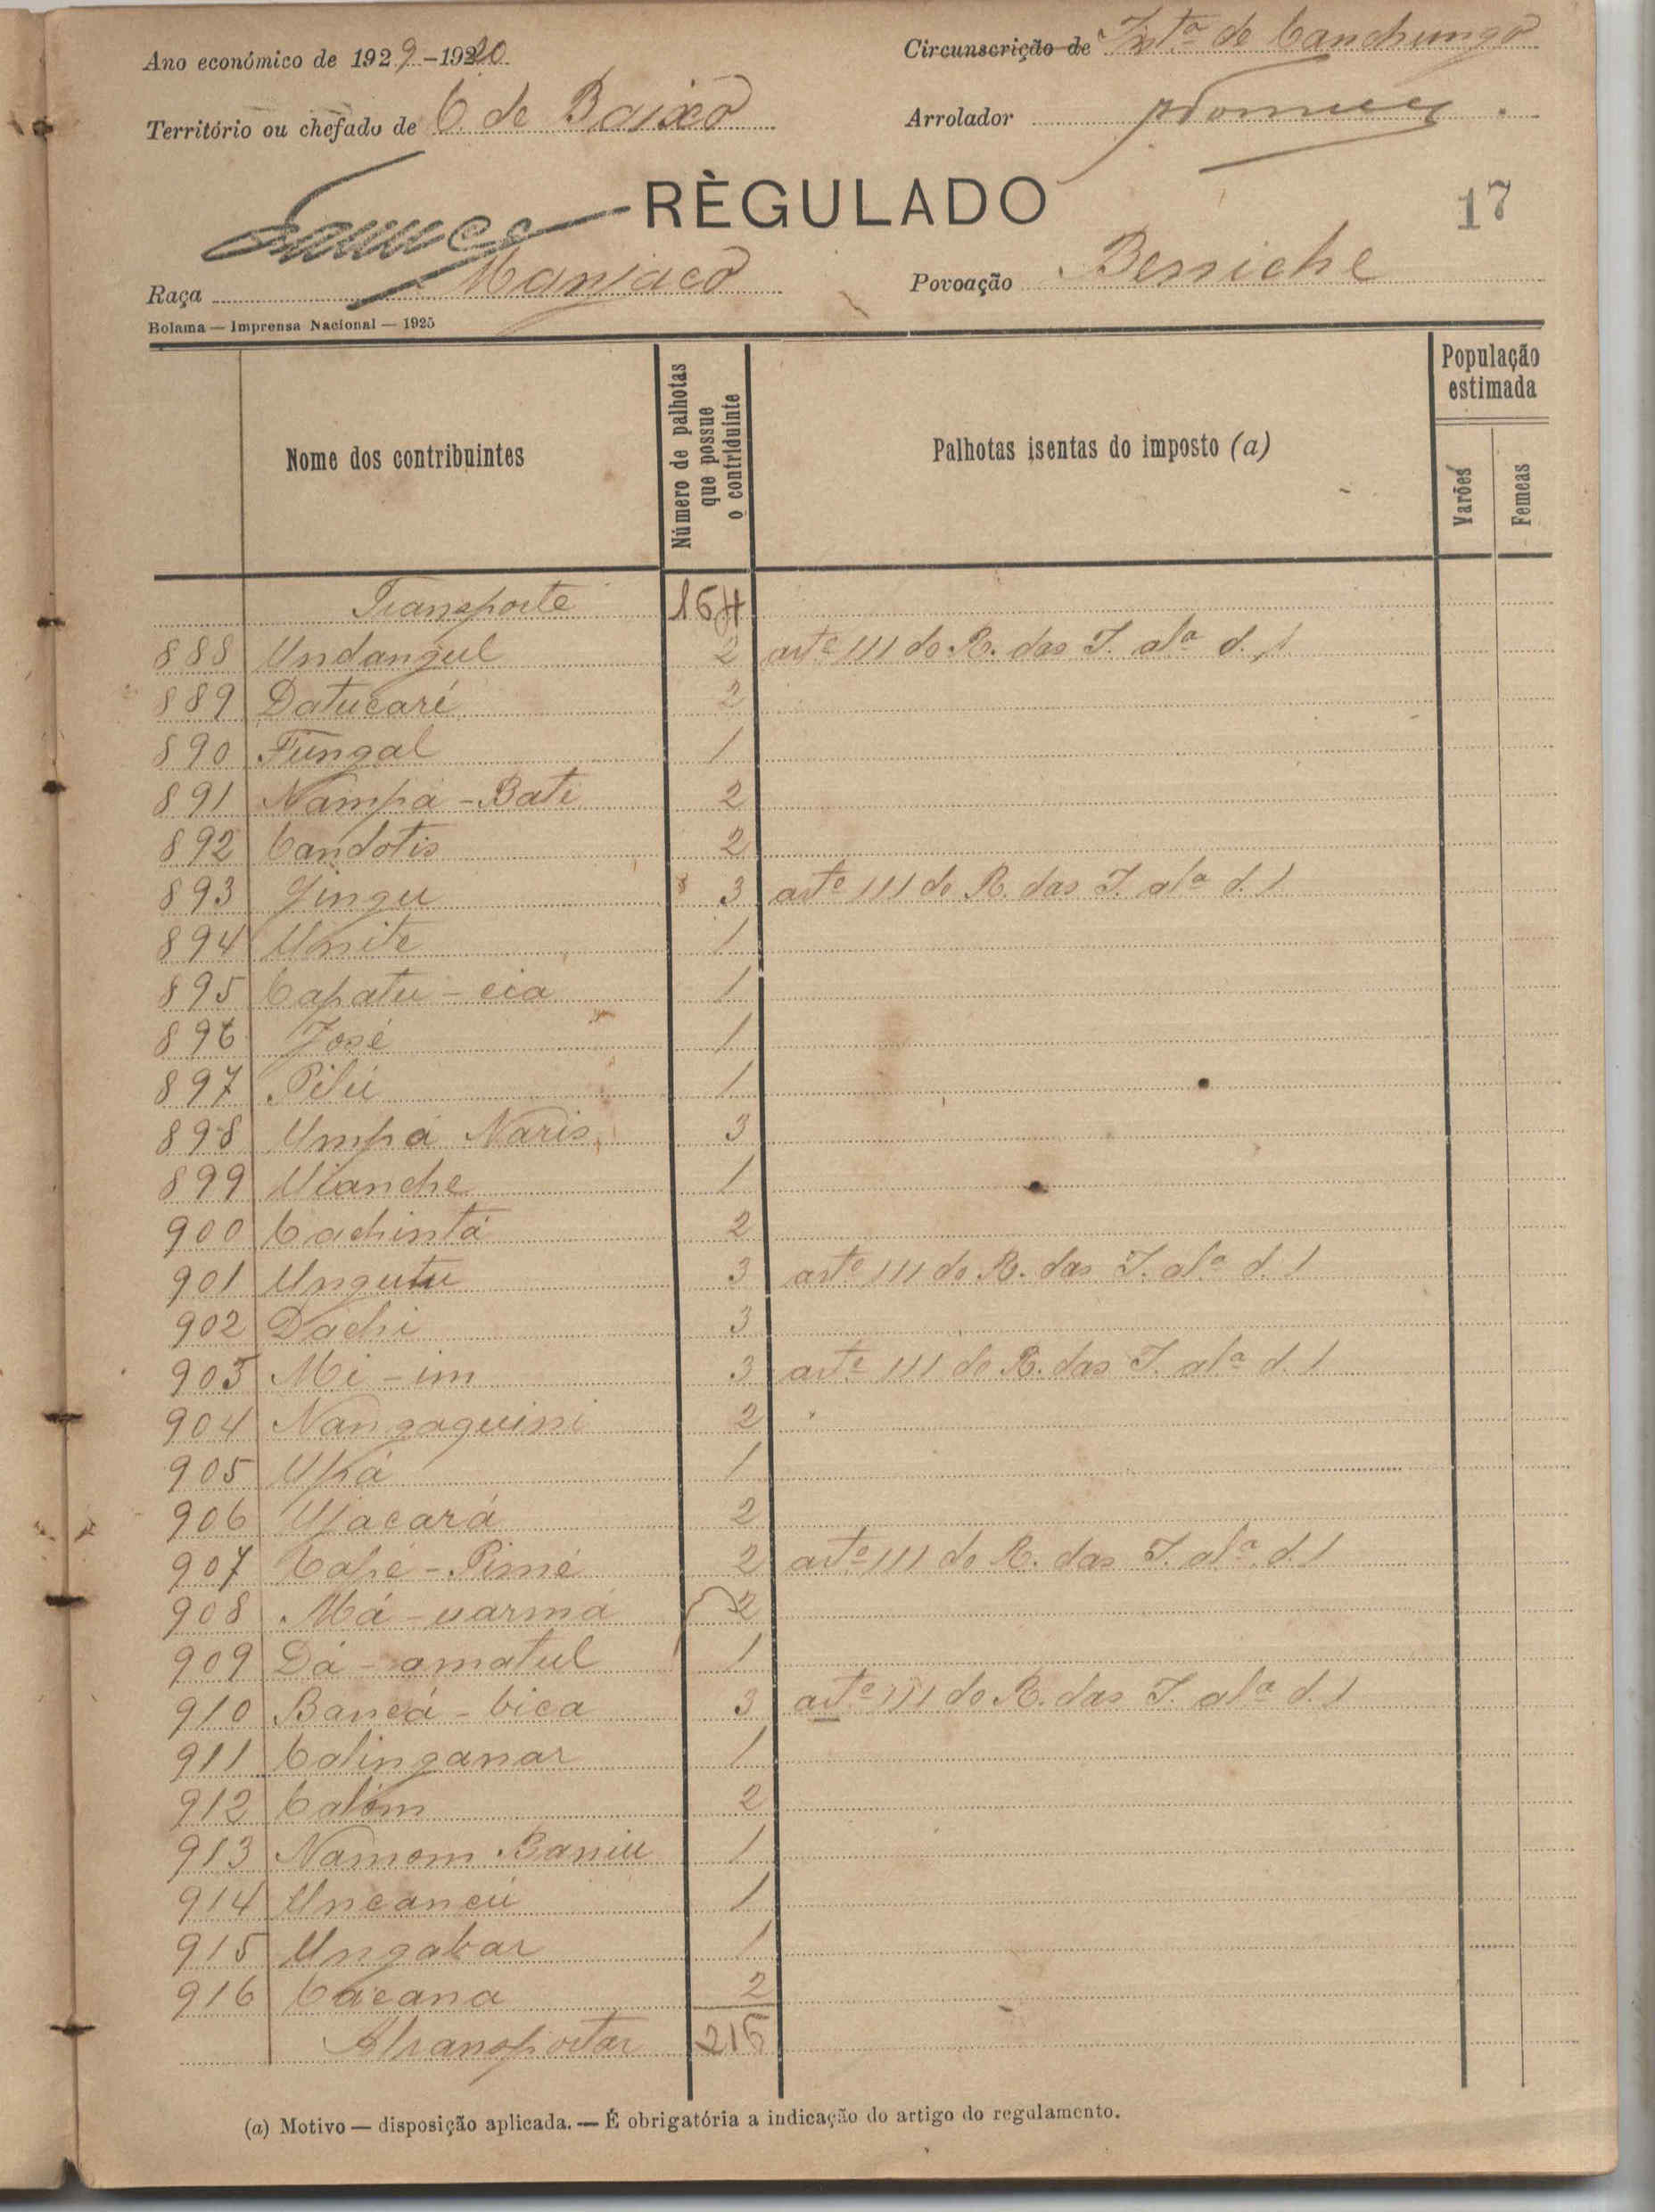 Ano económico de 1929-1920
Circunscrição de Int.ª de Canchungo
Território ou chefado de C. de Baixo
Arrolador
RÈGULADO
17
Raça Manjaco
Povoação Bersiche
Bolama — Imprensa Nacional — 1925
Nome dos contribuintes
Número de palhotas que possue o contriduinte
Palhotas isentas do imposto (a)
População estimada
Varões
Femeas
Transporte 164
888 Undangul 2 art.º 111 do R. das I. al.ª d. 1
889 Datucaré 2
890 Fungal 1
891 Nampá-Bati 2
892 Candotis 2
893 Jingu 3 art.º 111 do R. das I. al.ª d. 1
894 Unite 1
895 Capatu-cia 1
896 José 1
897 Pilú 1
898 Umpá Naris 3
899 Uianche 1
900 Cachintá 2
901 Ungutu 3 art.º 111 do R. das I. al.ª d. 1
902 Dachi 3
903 Mi-im 3 art.º 111 do R. das I. al.ª d. 1
904 Nangaguini 2
905 Upá 1
906 Ujacará 2
907 Capé-Pimé 2 art.º 111 do R. das I. al.ª d. 1
908 Má-uarmá 2
909 Dá-amatul 1
910 Bancá-bica 3 art.º 111 do R. das I. al.ª d. 1
911 Calinganar 1
912 Calóm 2
913 Namom Baniu 1
914 Uncancú 1
915 Ungabar 1
916 Cacana 2
A transportar 216
(a) Motivo — disposição aplicada. — É obrigatória a indicação do artigo do regulamento.